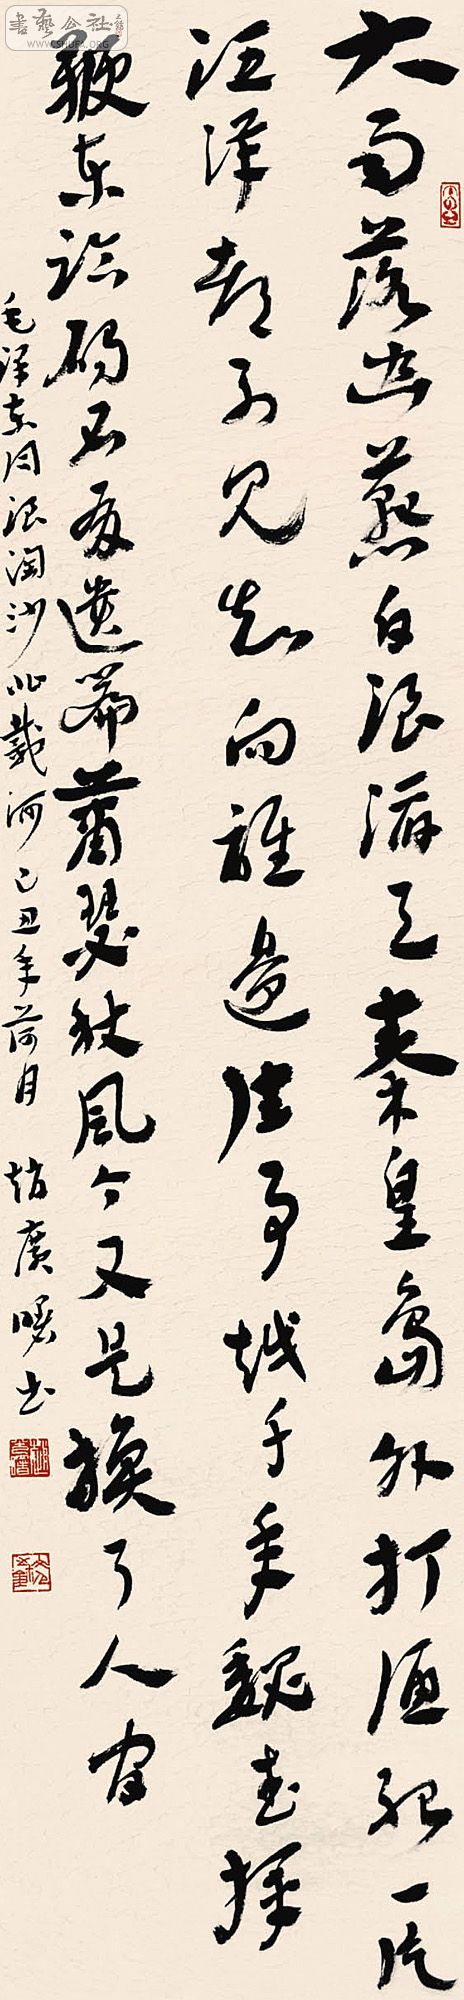 大雨落幽燕白浪滔天秦皇島外打漁船一片
汪洋都不見知向誰邊往事越千年魏武揮
鞭東臨碣石有遺篇蕭瑟秋風今又是換了人間
毛澤東詞浪淘沙北戴河己丑年荷月 趙廣書
書藝公社